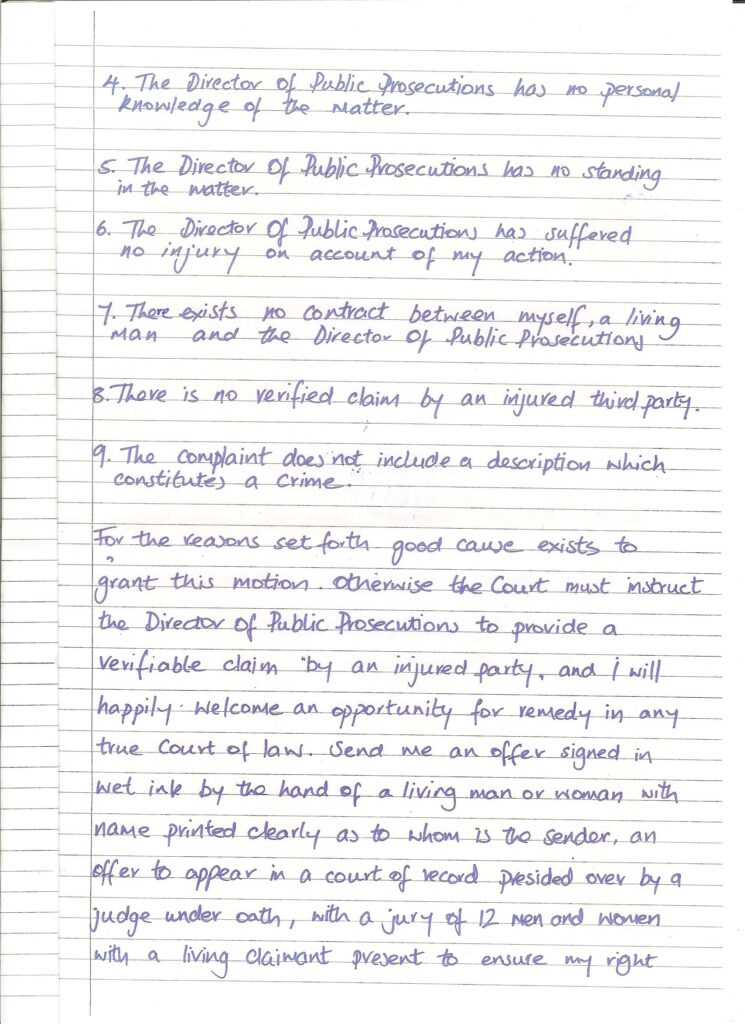 4. The Director of Public Prosecutions has no personal
knowledge of the matter.
5. The Director Of Public Prosecutions has no standing
in the matter.
6. The Director Of Public Prosecutions has suffered
no injury on account of my action.
7. There exists no contract between myself, a living
man and the Director Of Public Prosecutions
8. There is no verified claim by an injured third party.
9. The complaint does not include a description which
constitutes a crime.
For the reasons set forth good cause exists to
grant this motion. Otherwise the Court must instruct
the Director Of Public Prosecutions to provide a
verifiable claim by an injured party, and I will
happily welcome an opportunity for remedy in any
true Court of law. Send me an offer signed in
wet ink by the hand of a living man or woman with
name printed clearly as to whom is the sender, an
offer to appear in a court of record presided over by a
judge under oath, with a jury of 12 men and women
with a living claimant present to ensure my right